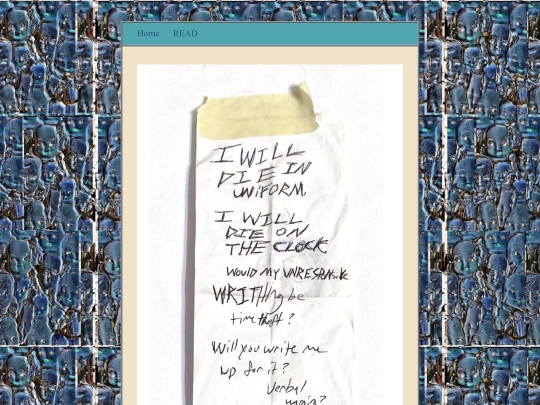 Home READ
I WILL
DIE IN
UNIFORM.
I WILL
DIE ON
THE CLOCK
WOULD MY
WRITHING be
time theft?
Will you write me
up for it?
Verbal